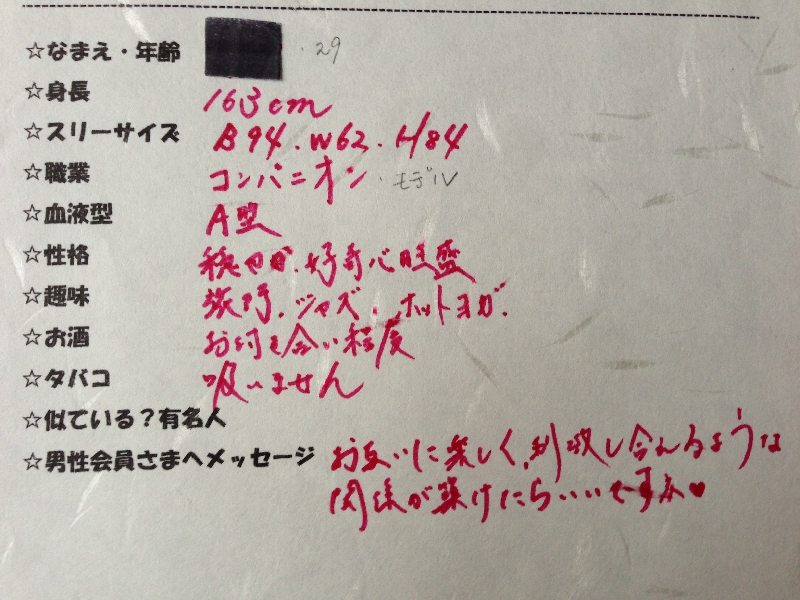 ☆なまえ・年齢 ・29
☆身長 163cm
☆スリーサイズ B94.W62.H84
☆職業 コンパニオン・モデル
☆血液型 A型
☆性格 穏やか、好奇心旺盛
☆趣味 旅行、ジャズ、ホットヨガ.
☆お酒 お付き合い程度
☆タバコ 吸いません
☆似ている?有名人
☆男性会員さまへメッセージ お互いに楽しく、刺激し合えるような
関係が築けたらいいですね♥